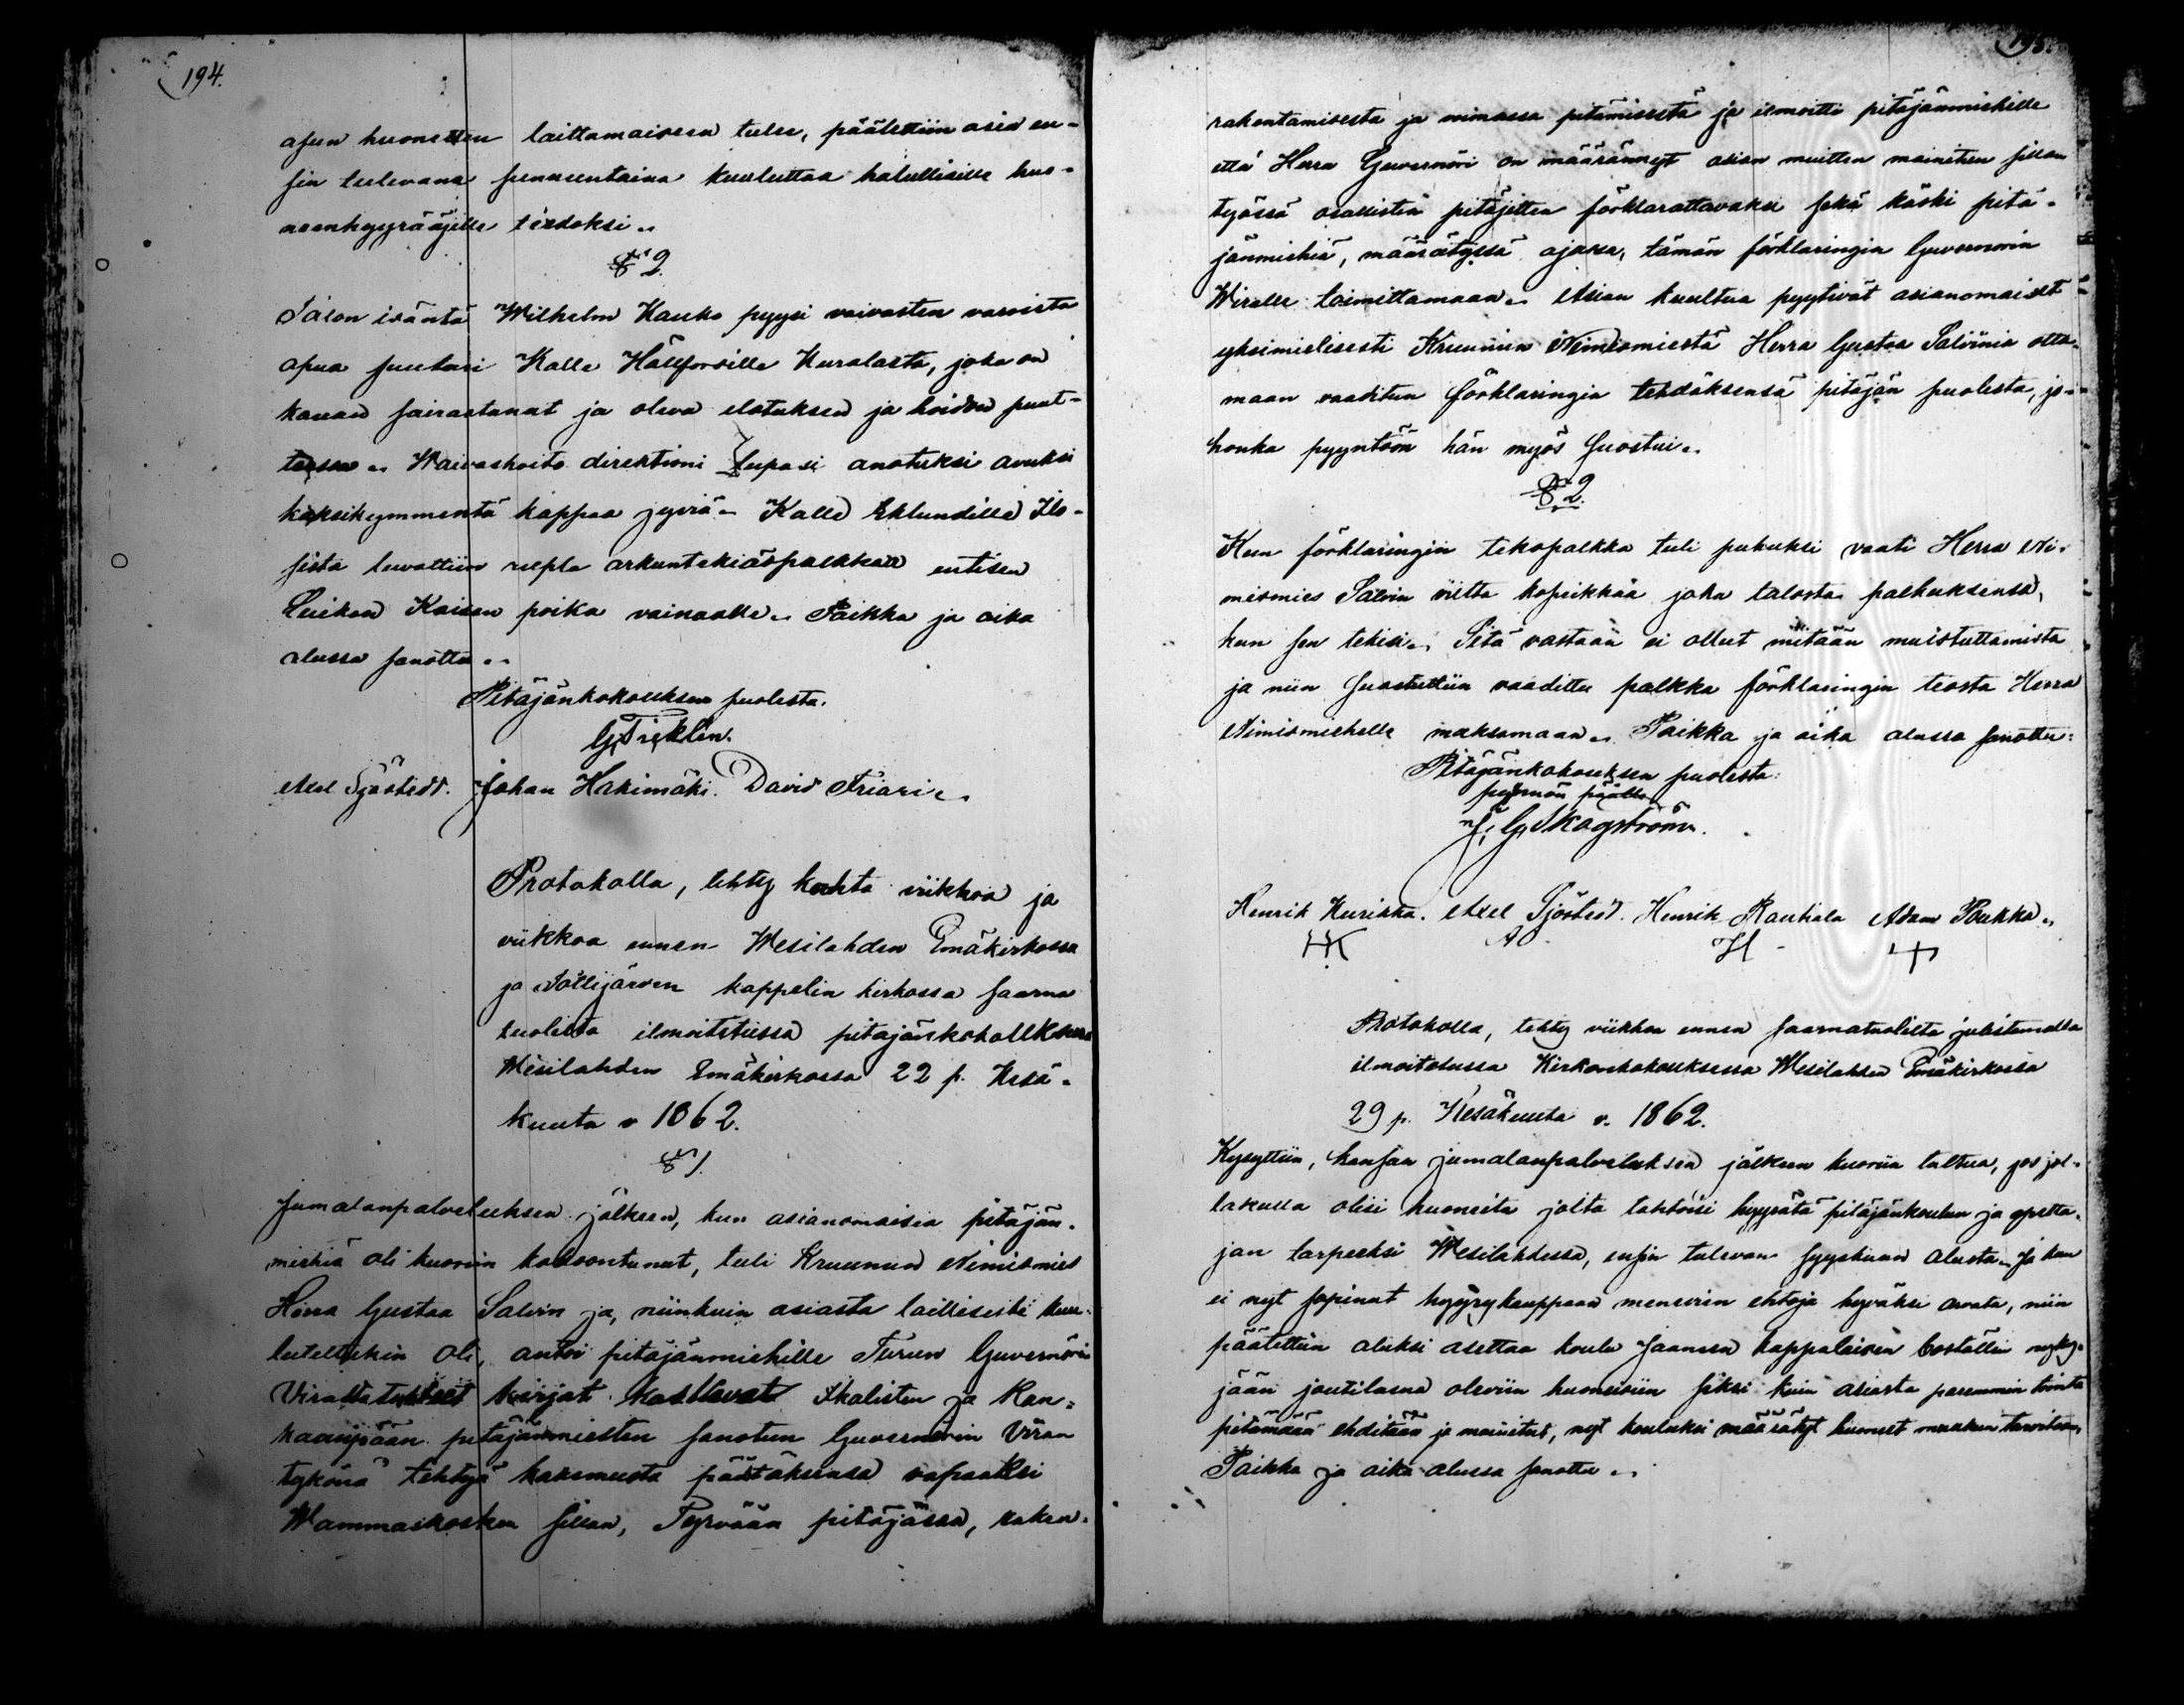 194.
asun huonetten laittamaisesa tulee, päätettiin asia en-
sin tulevana sunnuntaina kuuluttaa halullisille huo-
neenhyyrääjille tiedoksi.
§ 2.
Talon isäntä Wilhelm Kauko pyysi vaivasten varoista
apua suutari Kalle Hällforsille Kuralasta, joka on
kauan sairastanut ja oleva elatuksen ja hoidon puut-
tessa. Waivashoito direktioni lupasi anotuksi avuksi
kaksikymmentä kappaa jyviä. Kalle Eklundille Ilo-
sista luvattiin rupla arkuntekiäspalkkaa entisen
Kaisan poika vainaalle. Paikka ja aika
alussa sanottu.
Pitäjänkokouksen puolesta.
G, Ticklén.
Axel Sjöstedt. Johan Hakimäki. David Friari.
Protokolla, tehty kahta viikkoa ja
viikkoa ennen Wesilahden Emäkirkossa
ja Tottijärven kappelin kirkossa saarna
tuolista ilmoitetussa pitäjänkokouksessa
Wesilahden Emäkirkossa 22 p. Kesä-
kuuta v 1862.
§ 1.
Jumalanpalveluksen jälkeen, kun asianomaisia pitäjän-
miehiä oli kuoriin kokoontunut, tuli Kruunun Nimismies
Herra Gustaa Salvin ja, niinkuin asiasta laillisesti kuu-
lutettukin oli, antoi pitäjänmiehille Turun Guvernörin
Virasta tulleet kirjat koskevat Ikalisten ja Kan-
kaanpään pitäjänmiesten sanotun Guvernörin Viran
tykönä tehtyä hakemusta päästäksensä vapaaksi
Wammaskosken sillan, Tyrvään pitäjässä, raken-
195.
rakentamisesta ja voimassa pitämisestä ja ilmoitti pitäjänmiehille
että Herra Guvernöri on määrännyt asian muitten mainitun sillan
työssä osallisten pitäjitten förklarattavaksi sekä käski pitä-
jänmiehiä, määrätyssä ajassa, tämän förklaringin Guvernörin
Wiralle toimittamaan. Asian kuultua pyytivät asianomaiset
yksimielisesti Kruunun Nimismiestä Herra Gustaa Salvinia otta-
maan vaaditun förklaringin tehdäksensä pitäjän puolesta, jo-
honka pyyntöön hän myös suostui.
§ 2.
Kun förklaringin tekopalkka tuli puheeksi vaati Herra Ni-
mismies Salvin viittä kopeikkaa joka talosta palkaksensa,
kun sen tekisi. Sitä vastaan ei ollut mitään muistuttamista
ja niin suostuttiin vaadittu palkka förklaringin teosta Herra
Nimismiehelle maksamaan. Paikka ja aika alussa sanottu.
Pitäjänkokouksen puolesta:
pyynnön päälle
J, G, Skogström.
Henrik Kurikka. Axel Sjöstedt. Henrik Rautiala Adam Poukka.
HK A H
Protokolla, tehty viikkoa ennen saarnatuolilta julistamalla
ilmoitetussa Kirkonkokouksessa Wesilahden Emäkirkossa
29 p. Kesäkuuta v. 1862.
Kysyttiin, kansan jumalanpalveluksen jälkeen kuoriin tultua, jos jol-
lakulla olisi huoneita joita tahtoisi hyyrätä pitäjänkoulun ja opetta-
jan tarpeeksi Wesilahdessa, ensin tulevan syyskuun alusta. Ja kun
ei nyt sopinut hyyrykauppaan meneviin ehtoja hyväksi arvata, niin
päätettiin aluksi asettaa koulu Jaansen kappalaisen boställin nyky-
jään joutilasna oleviin huoneisiin siksi kuin asiasta paremmin toimta
pitämään ehditään ja mainitut, nyt kouluksi määrätyt huoneet muukun tarvitaan.
Paikka ja aika alussa sanottu.